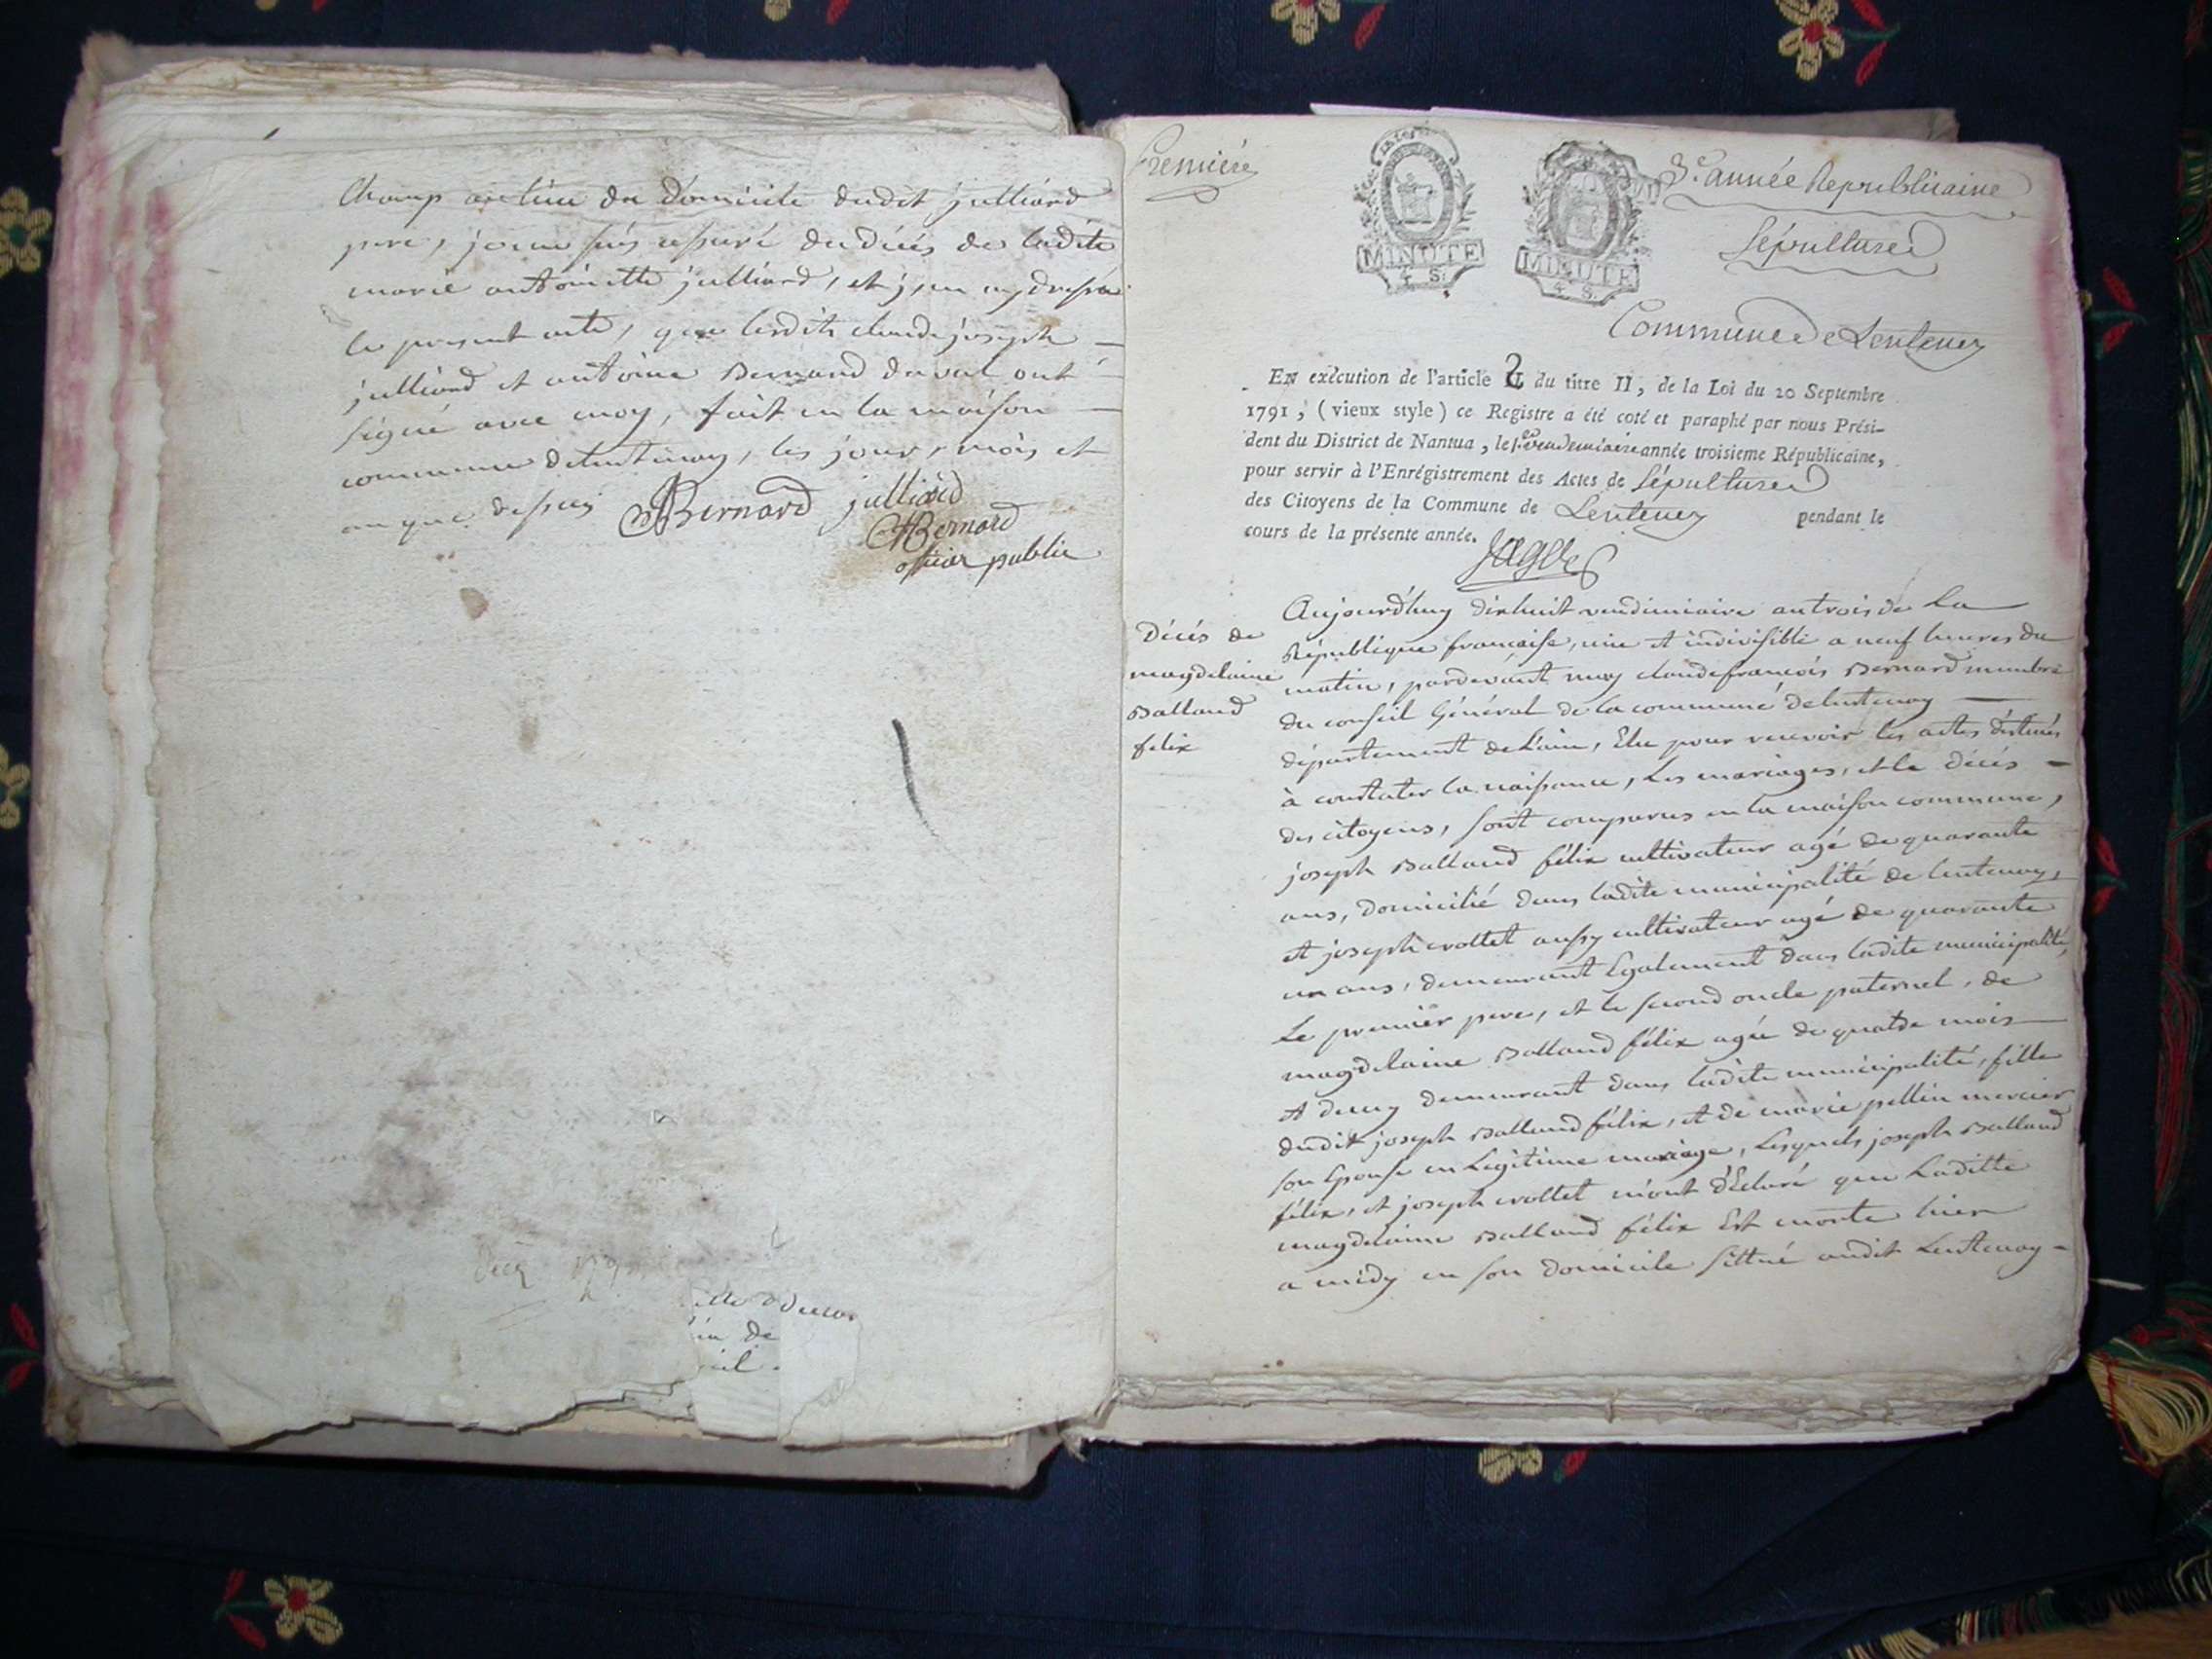 Champ au lieu du domicile dudit julliard
pere, je me suis assuré du décés de ladite
marie antoinette julliard, et j'en ay dressé
le present acte, que lesdits claude joseph
julliard et antoine Bernard duval ont
signé avec moy, fait en la maison
commune delentenay, les jour, mois et
an que dessus Bernard julliard
Bernard
officier public
Première
MINUTE
4 S.
MINUTE
4 S.
3e. année Republicaine
Sépultures
Commune de Lentenay
EN exècution de l'article 2 du titre II, de la Loi du 20 Septembre
1791, (vieux style) ce Registre a été coté et paraphé par nous Prési-
dent du District de Nantua, le 1er vendemiaire année troisieme Républicaine,
pour servir à l'Enrégistrement des Actes de Sépultures
des Citoyens de la Commune de Lentenay pendant le
cours de la présente année.
Décés de
magdelaine
Balland
felix
Aujourd'huy dixhuit vendimiaire an trois de La
République francaise, une et indivisible a neuf heures du
matin, pardevant moy claude françois Bernard membre
du conseil Général de la commune delentenay
département de L'ain, Elu pour recevoir les actes déstinés
à constater la naissance, Les mariages, et le décés
des citoyens, sont comparus en la maison commune,
joseph Balland félix cultivateur agé de quarante
ans, domicilié dans ladite municipalité de lentenay,
et joseph crollet aussy cultivateur agé de quarante
un ans, demeurant Egalement dans ladite municipalité,
Le premier pere, et le second oncle paternel, de
magdelaine Balland félix agée de quatre mois
et demy demeurant dans ladite municipalité, fille
dudit joseph Balland félix, et de marie pellin mercier
son Epouse en Legitime mariage, Lesquels joseph Balland
félix, et joseph crollet m'ont déclaré que Laditte
magdelaine Balland félix Est morte hier
a midy en son domicile sittué audit Lentenay